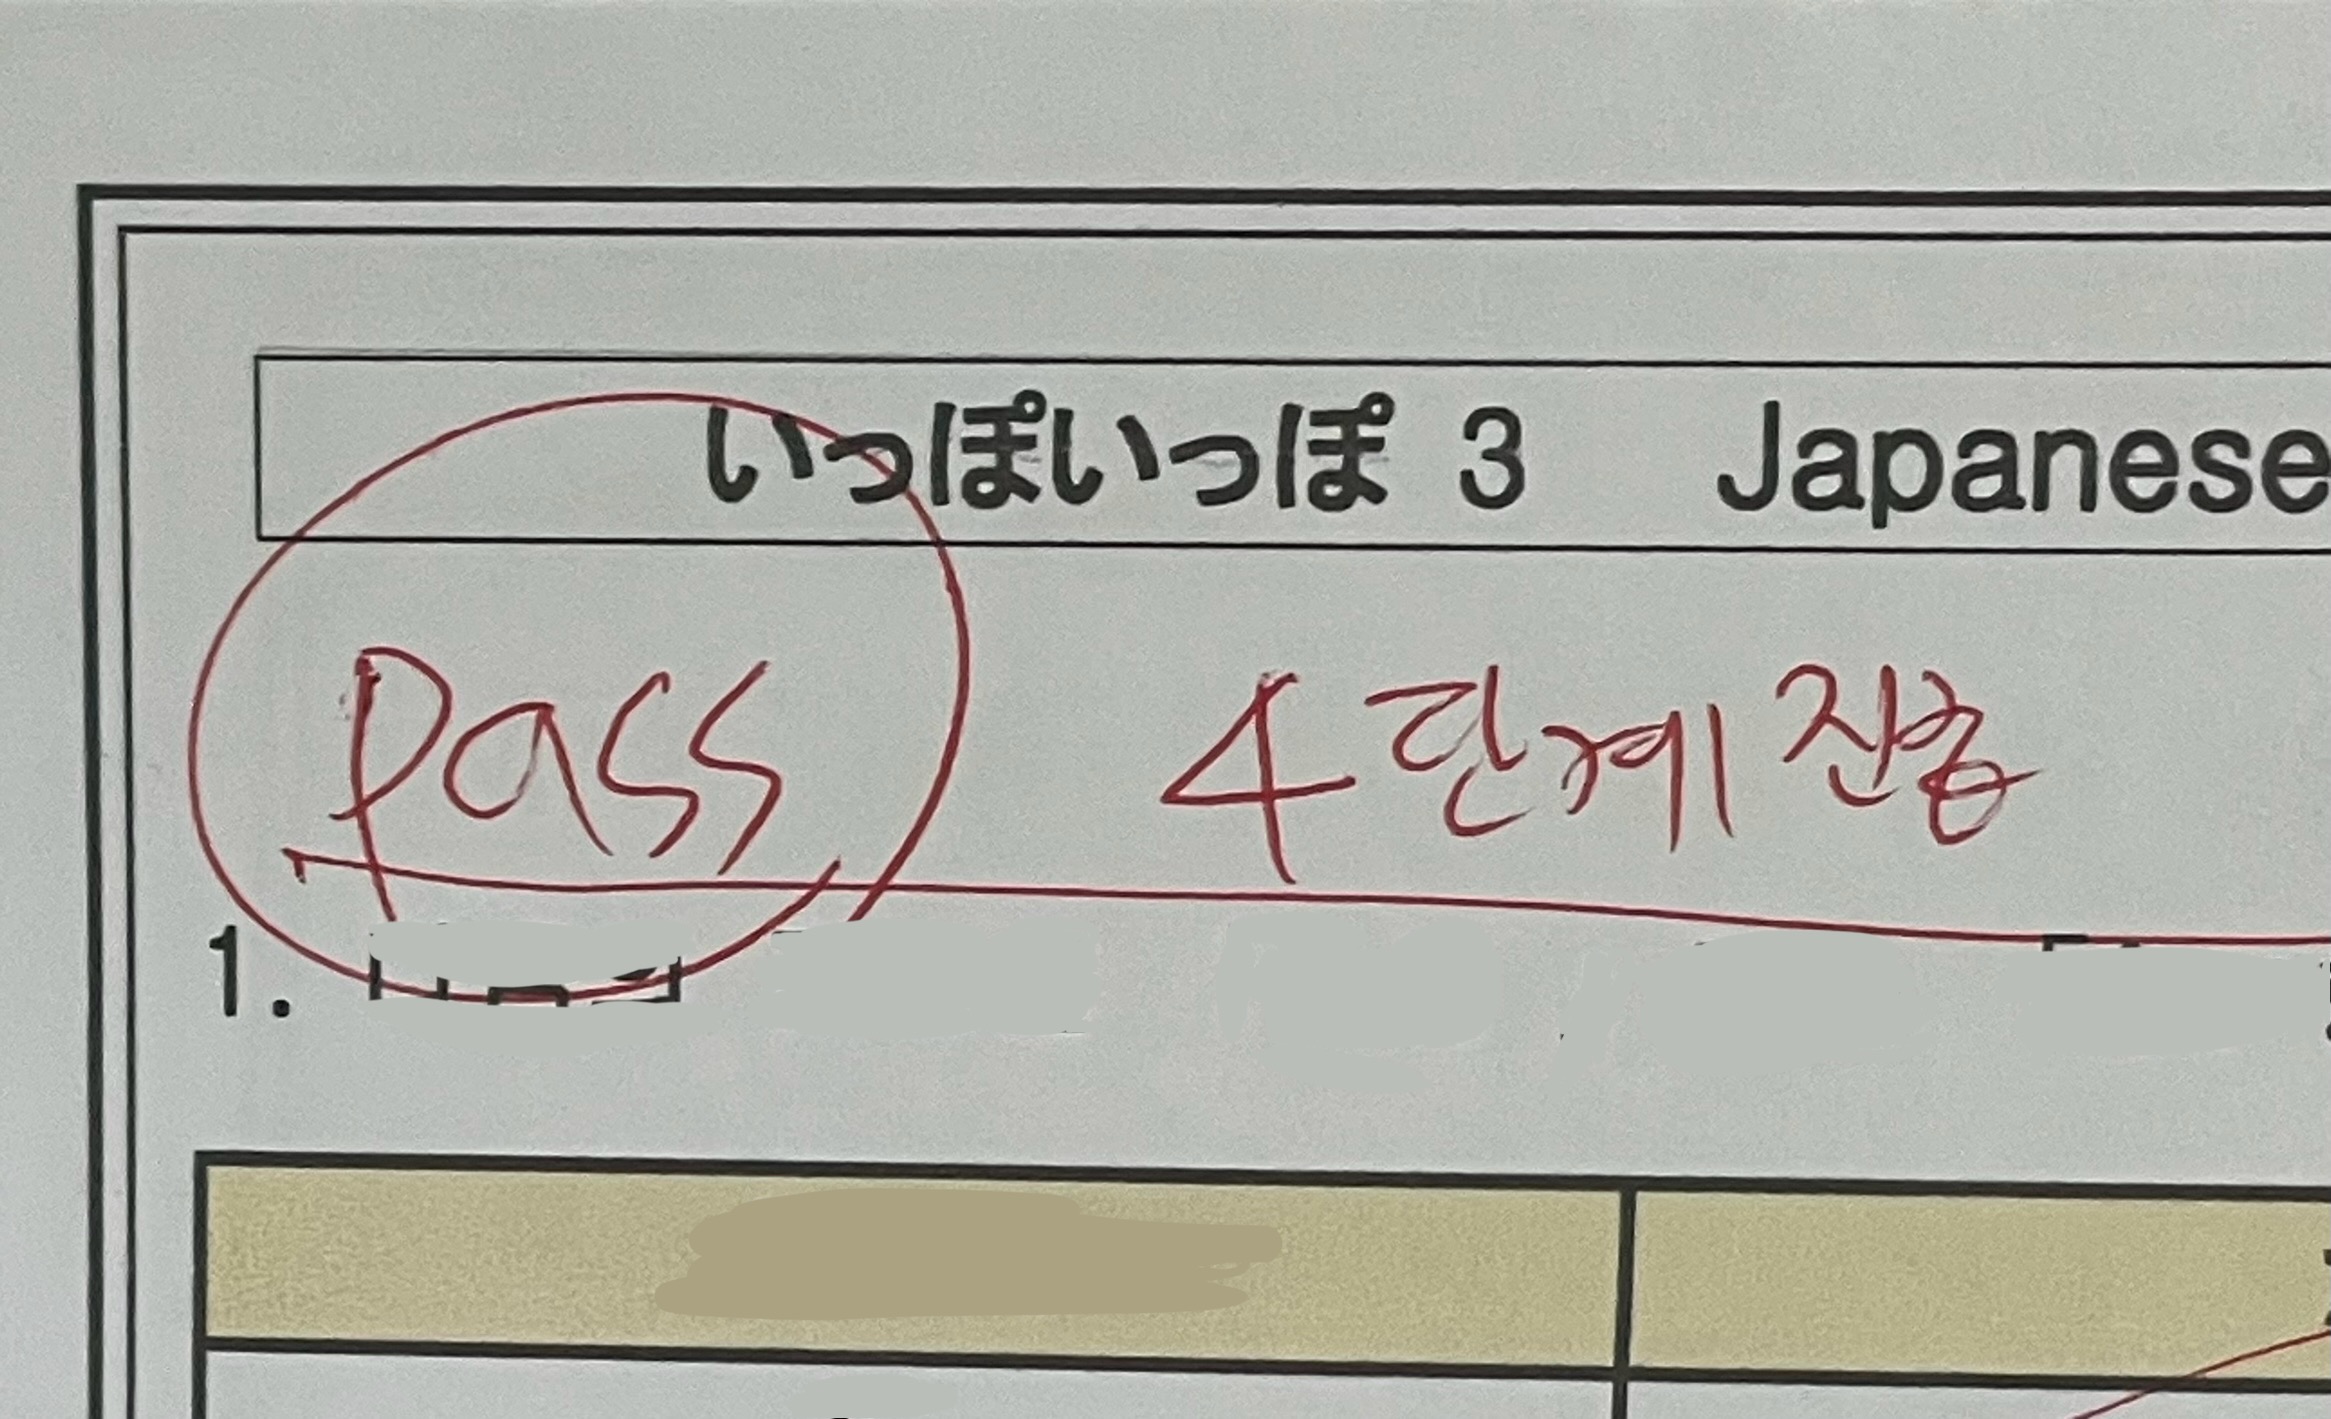 いっぽいっぽ 3 Japanese
Pass 4단계 진급
1.